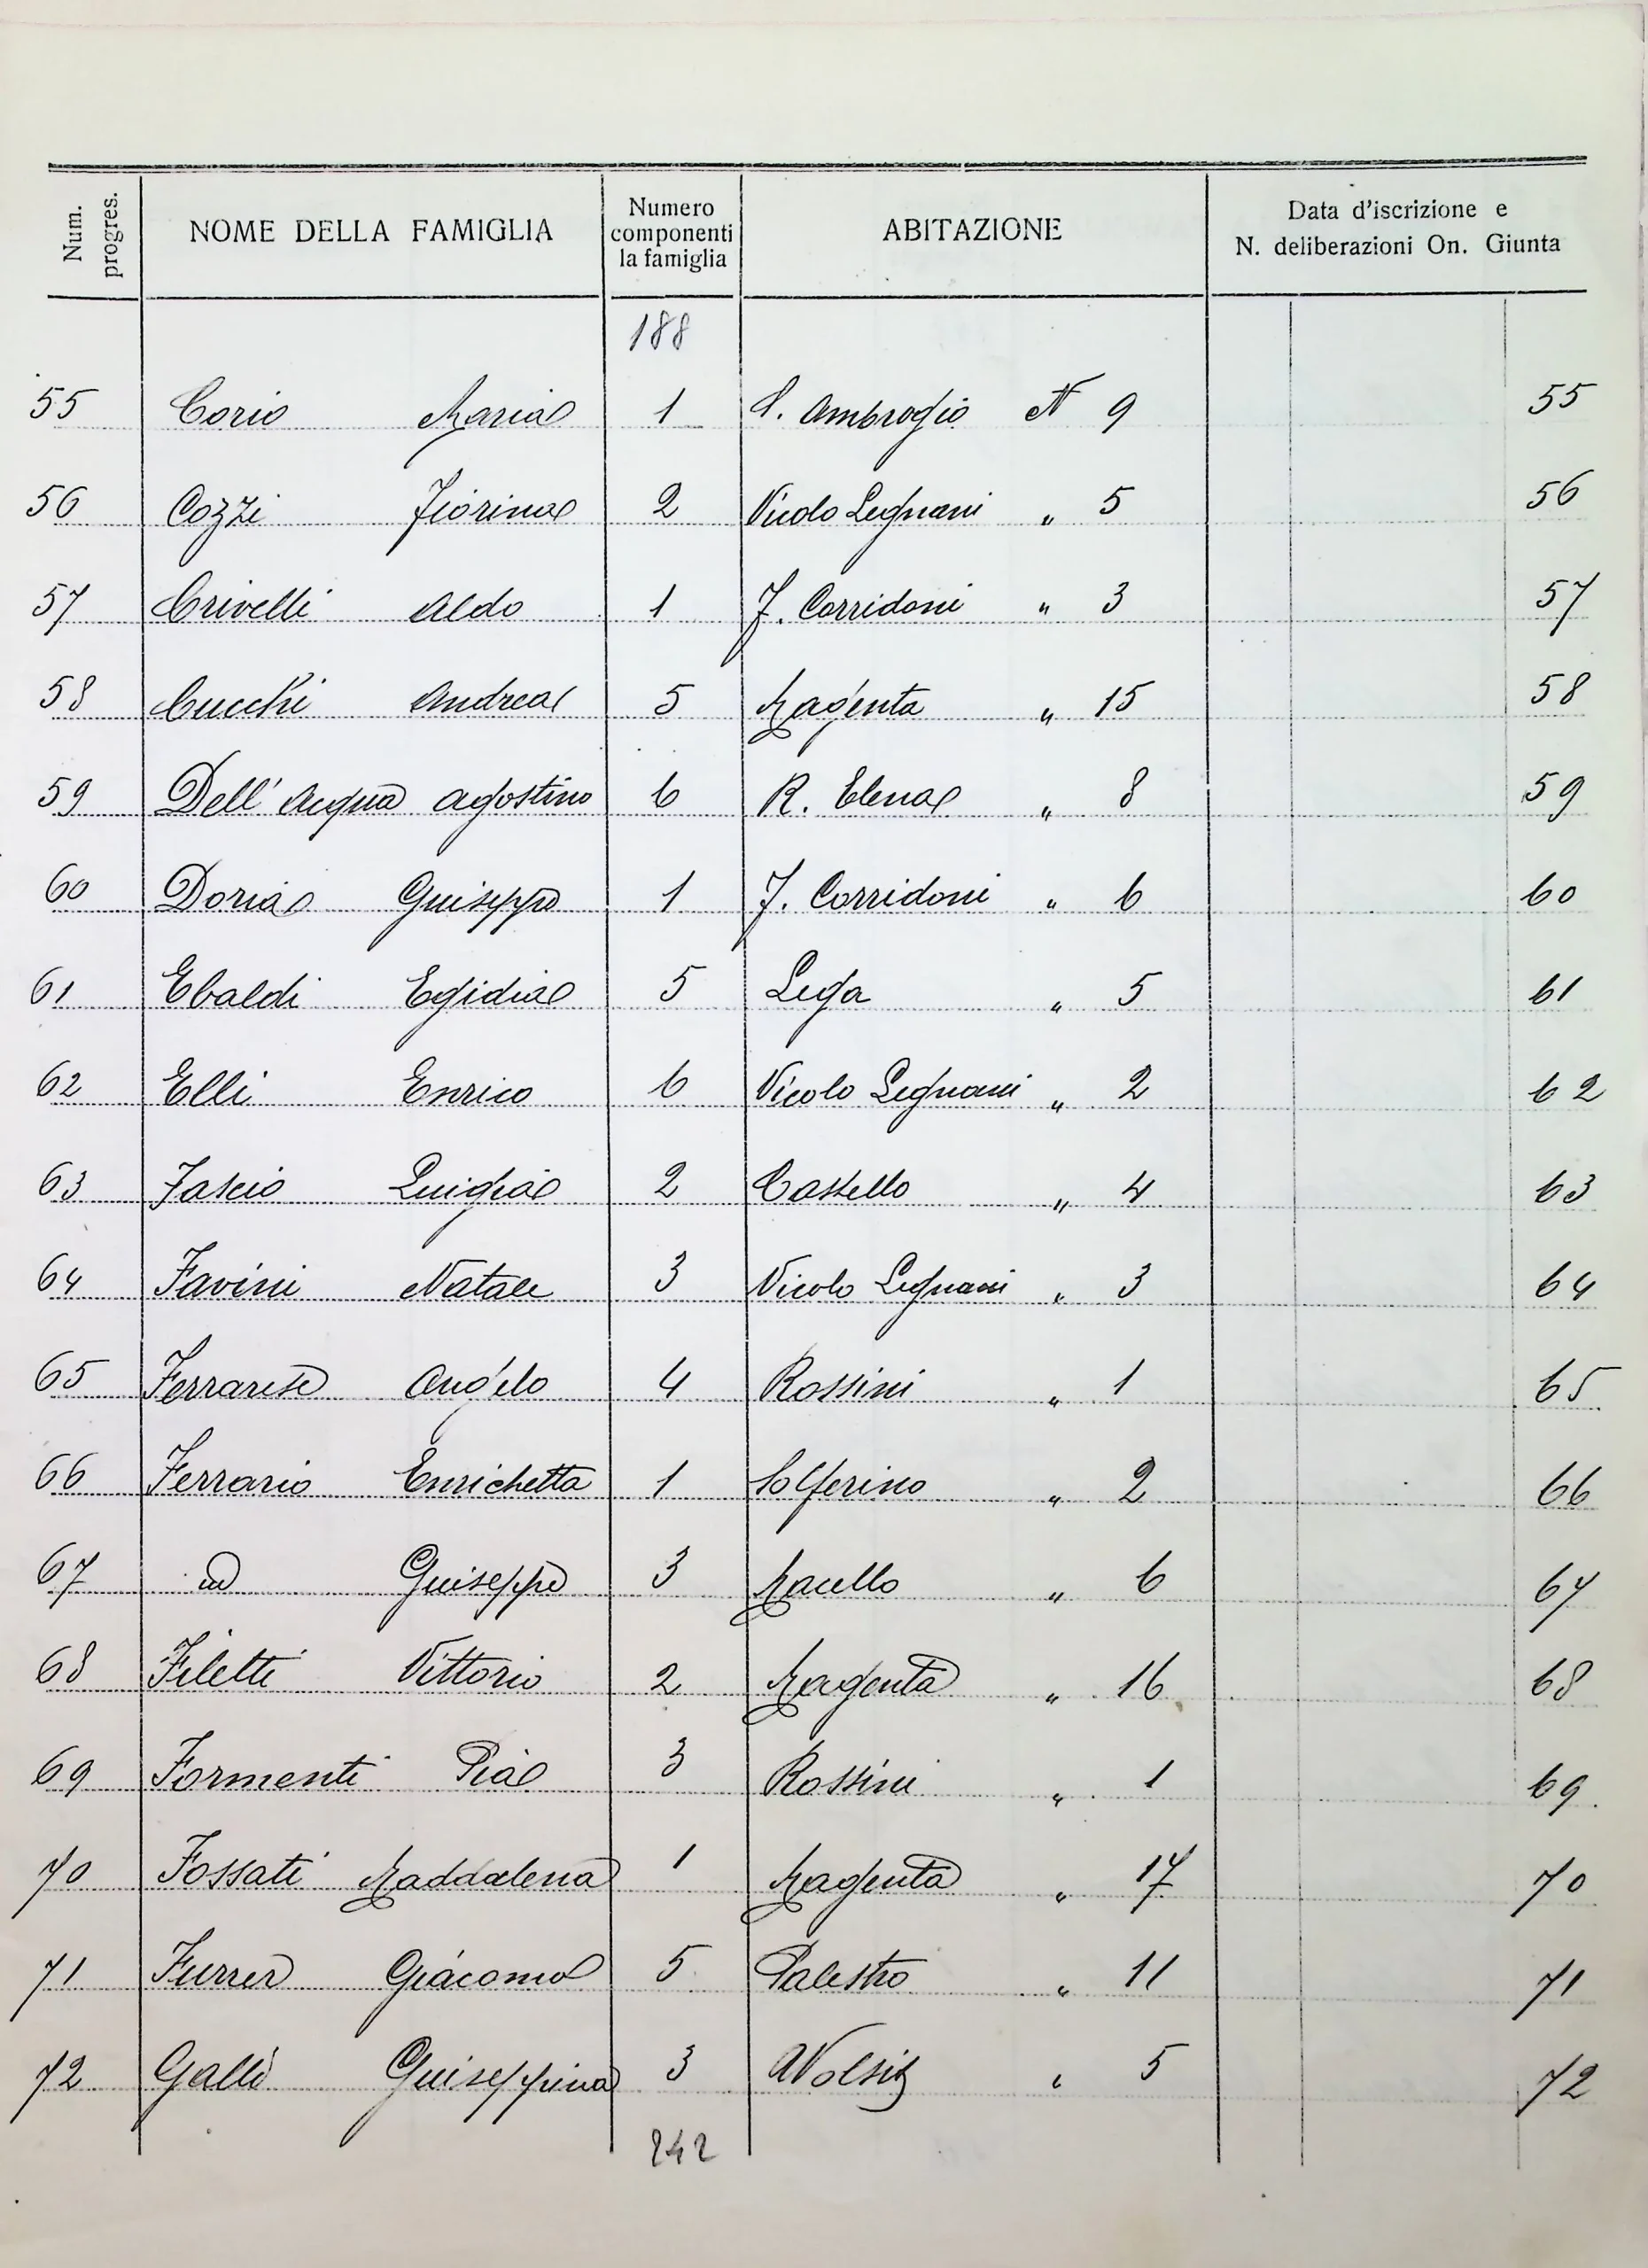 Num. progres. NOME DELLA FAMIGLIA Numero componenti la famiglia ABITAZIONE Data d'iscrizione e N. deliberazioni On. Giunta
188
55 Corio Maria 1 S. Ambrogio N 9 55
56 Cozzi Fiorina 2 Vicolo Legnani " 5 56
57 Crivelli Aldo 1 F. Corridoni " 3 57
58 Cucchi Andrea 5 Magenta " 15 58
59 Dell' Acqua Agostino 6 R. Elena " 8 59
60 Doria Giuseppe 1 F. Corridoni " 6 60
61 Ebaldi Egidia 5 Lega " 5 61
62 Elli Enrico 6 Vicolo Legnani " 2 62
63 Fascio Luigia 2 Castello " 4 63
64 Favini Natale 3 Vicolo Legnani " 3 64
65 Ferrarese Angelo 4 Rossini " 1 65
66 Ferrario Enrichetta 1 Solferino " 2 66
67 id Giuseppe 3 Macello " 6 67
68 Filetti Vittorio 2 Magenta " 16 68
69 Formenti Pia 3 Rossini " 1 69
70 Fossati Maddalena 1 Magenta " 17 70
71 Furrer Giacomo 5 Palestro " 11 71
72 Galli Giuseppina 3 Wolsit " 5 72
242